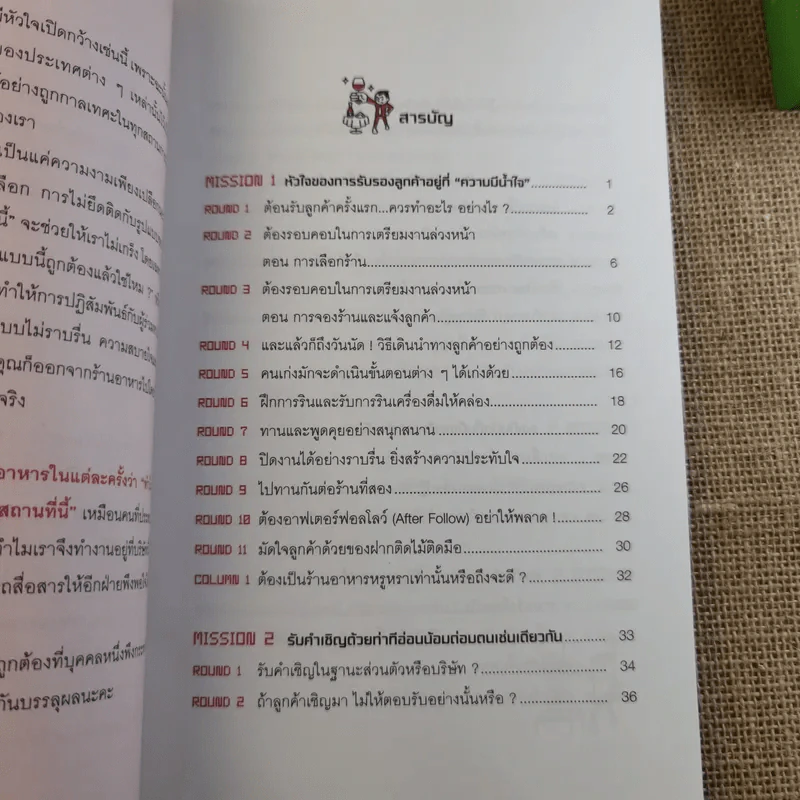 มีหัวใจเปิดกว้างเช่นนี้
ของประเทศต่าง ๆ เหล่านั้น
อย่างถูกกาลเทศะในทุกสถาน
องเรา
เป็นแค่ความงามเพียงเปลือก
เลือก การไม่ยึดติดกับรูปแบบ
นี้” จะช่วยให้เราไม่เกร็ง
แบบนี้ถูกต้องแล้วใช่ไหม ?”
ทำให้การปฏิสัมพันธ์กับผู้ร่วม
แบบไม่ราบรื่น ความสบายใจ
คุณก็ออกจากร้านอาหารไป
จริง
อาหารในแต่ละครั้งว่า
สถานที่นี้” เหมือนคนที่
ทำไมเราจึงทำงานอยู่ที่บริษัท
ถสื่อสารให้อีกฝ่ายพึงพอใจ
ถูกต้องที่บุคคลหนึ่งพึง
กันบรรลุผลนะคะ
สารบัญ
MISSION 1 หัวใจของการรับรองลูกค้าอยู่ที่ “ความมีน้ำใจ”.............. 1
ROUND 1 ต้อนรับลูกค้าครั้งแรก...ควรทำอะไร อย่างไร ?.................. 2
ROUND 2 ต้องรอบคอบในการเตรียมงานล่วงหน้า
ตอน การเลือกร้าน............................................. 6
ROUND 3 ต้องรอบคอบในการเตรียมงานล่วงหน้า
ตอน การจองร้านและแจ้งลูกค้า............................... 10
ROUND 4 และแล้วก็ถึงวันนัด ! วิธีเดินนำทางลูกค้าอย่างถูกต้อง.......... 12
ROUND 5 คนเก่งมักจะดำเนินขั้นตอนต่าง ๆ ได้เก่งด้วย.................. 16
ROUND 6 ฝึกการรินและรับการรินเครื่องดื่มให้คล่อง...................... 18
ROUND 7 ทานและพูดคุยอย่างสนุกสนาน................................ 20
ROUND 8 ปิดงานได้อย่างราบรื่น ยิ่งสร้างความประทับใจ................ 22
ROUND 9 ไปทานกันต่อร้านที่สอง........................................ 26
ROUND 10 ต้องอาฟเตอร์ฟอลโลว์ (After Follow) อย่าให้พลาด !.......... 28
ROUND 11 มัดใจลูกค้าด้วยของฝากติดไม้ติดมือ.......................... 30
COLUMN 1 ต้องเป็นร้านอาหารหรูหราเท่านั้นหรือถึงจะดี ?................ 32
MISSION 2 รับคำเชิญด้วยท่าทีอ่อนน้อมถ่อมตนเช่นเดียวกัน.......... 33
ROUND 1 รับคำเชิญในฐานะส่วนตัวหรือบริษัท ?........................ 34
ROUND 2 ถ้าลูกค้าเชิญมา ไม่ให้ตอบรับอย่างนั้นหรือ ?.................. 36